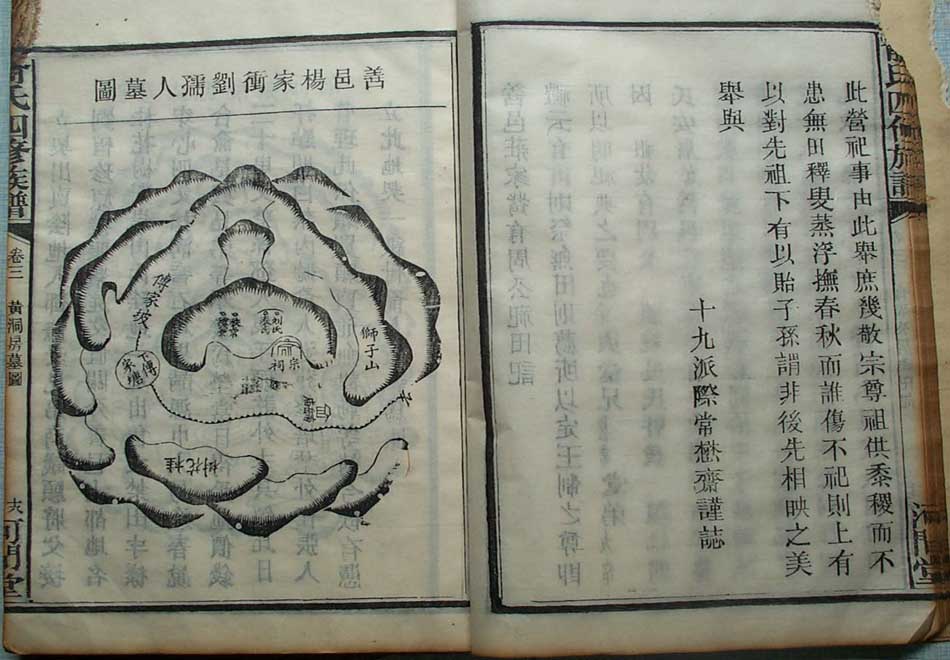 此營祀事由此舉庶幾敬宗尊祖供黍稷而不
患無田釋叟蒸浮撫春秋而誰傷不祀則上有
以對先祖下有以貽子孫謂非後先相映之美
舉與
十九派際常懋齋謹誌
善邑楊家衝劉孺人墓圖
獅子山
傅家坡
宗祠
下傅家塘
桂花樹
氏四修族譜
卷三
黃洞房墓圖
河間堂
氏四修族譜
河間堂